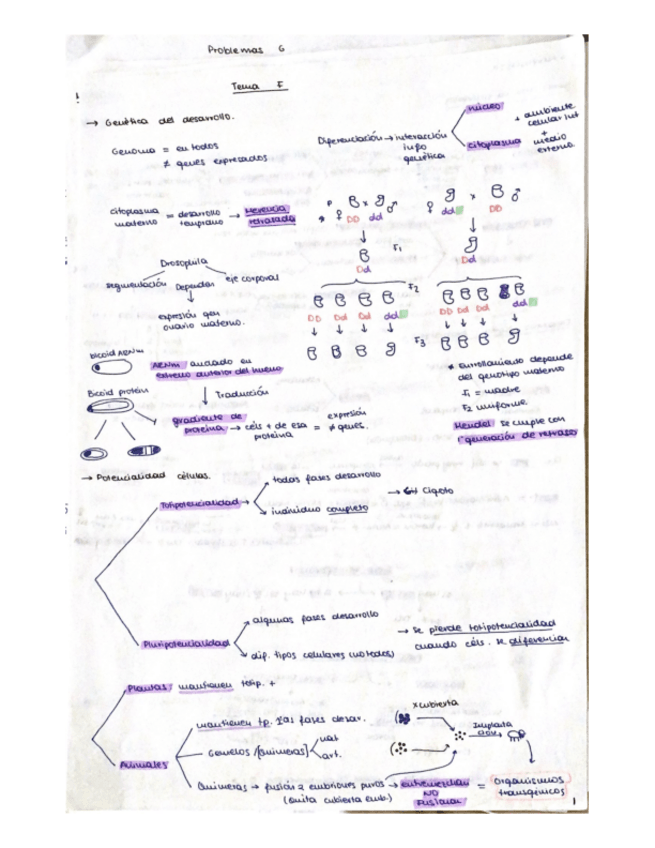 Problemas 6
Tema F
→ Genética del desarrollo.
Genoma = en todos
≠ genes expresados
Diferenciación → interacción
info
genética
núcleo
citoplasma
+ ambiente
celular int
+
medio
externo.
citoplasma
materno = desarrollo
temprano → Herencia
retrasada
P
♀ DD x dd ♂
F1
Dd
F2
DD Dd Dd dd
F3
♀ dd x DD ♂
Dd
DD Dd Dd dd
* Enrollamiento depende
del genotipo materno
F1 = madre
F2 uniforme.
Mendel se cumple con
1ª generación de retraso
Drosophila
segmentación Dependen eje corporal
expresión gen
ovario materno.
bicoid ARNm
ARNm anclado en
extremo anterior del huevo
Traducción
Bicoid proteína
gradiente de
proteína → céls + de esa
proteína = expresión
≠ genes.
→ Potencialidad células.
Totipotencialidad
todas fases desarrollo
individuo completo
→ Cigoto
Pluripotencialidad
algunas fases desarrollo
dif. tipos celulares (no todos)
→ Se pierde totipotencialidad
cuando céls. se diferencian
Plantas mantienen totip. +
Animales
mantienen tp. 1as fases desar.
Gemelos / [Quimeras] nat
art.
Quimeras → fusión 2 embriones puros → entremezclan
NO
fusionan
(quita cubierta emb.)
x cubierta
Implanta
= organismos
transgénicos
1